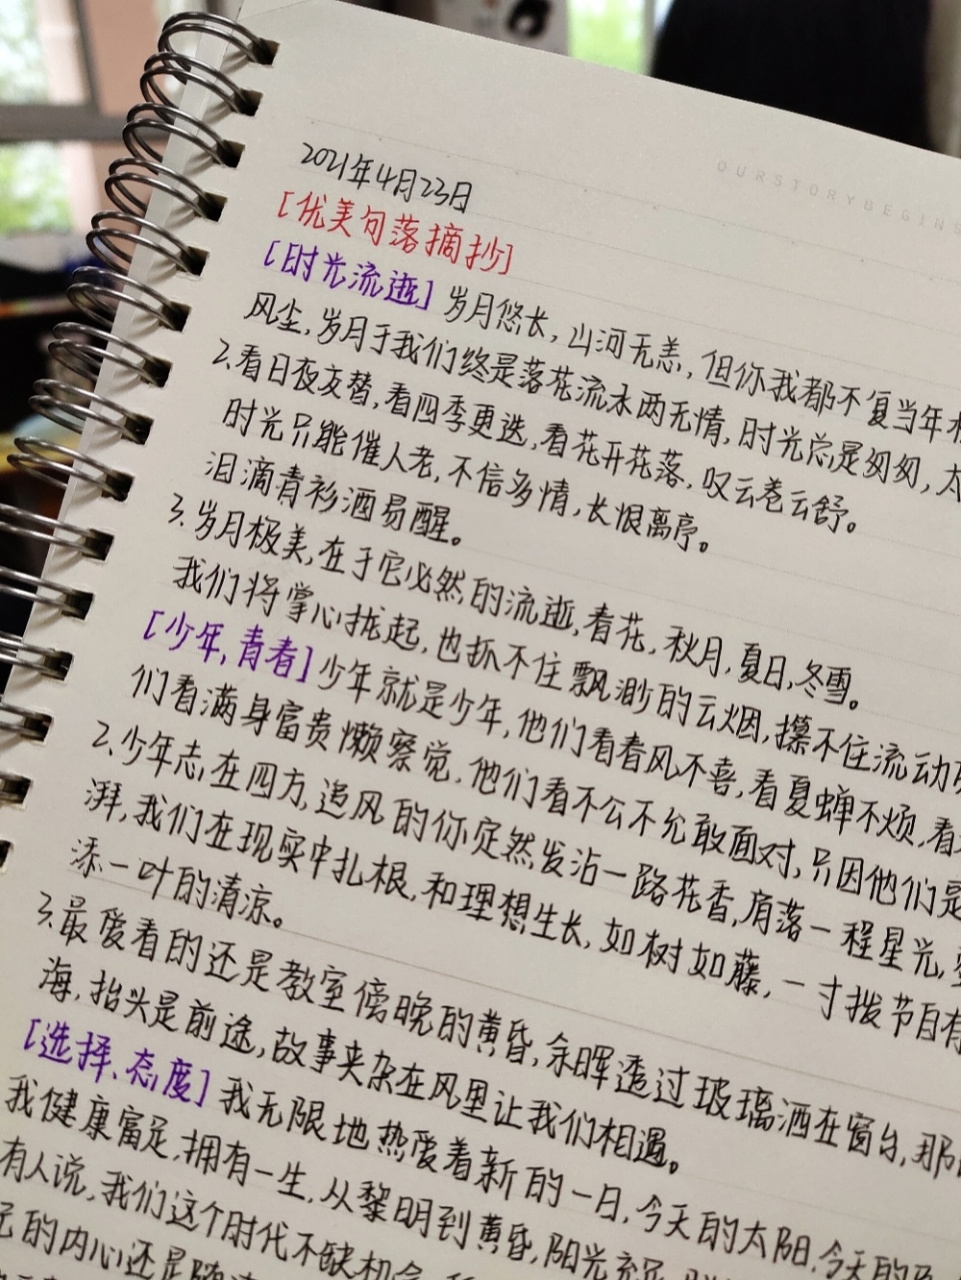 OURSTORYBEGINS
2021年4月23日
[优美句落摘抄]
[时光流逝] 岁月悠长，山河无恙，但你我都不复当年
风尘，岁月于我们终是落花流水两无情，时光总是匆匆，太
2.看日夜交替，看四季更迭，看花开花落，叹云卷云舒。
时光只能催人老，不信多情，长恨离亭。
泪滴青衫酒易醒。
3.岁月极美，在于它必然的流逝，春花，秋月，夏日，冬雪。
我们将掌心拢起，也抓不住飘渺的云烟，攥不住流动
[少年，青春] 少年就是少年，他们看春风不喜，看夏蝉不烦，看
们看满身富贵懒察觉，他们看不公不允敢面对，只因他们是
2.少年志在四方，追风的你定然发沾一路花香，肩落一程星光，
湃，我们在现实中扎根，和理想生长，如树如藤，一寸拨节自有
添一叶的清凉。
3.最爱看的还是教室傍晚的黄昏，余晖透过玻璃洒在窗台，那
海，抬头是前途，故事夹杂在风里让我们相遇。
[选择、态度] 我无限地热爱着新的一日，今天的太阳，今天的
我健康富足，拥有一生，从黎明到黄昏，阳光充足
有人说，我们这个时代不缺机会
的内心还是随